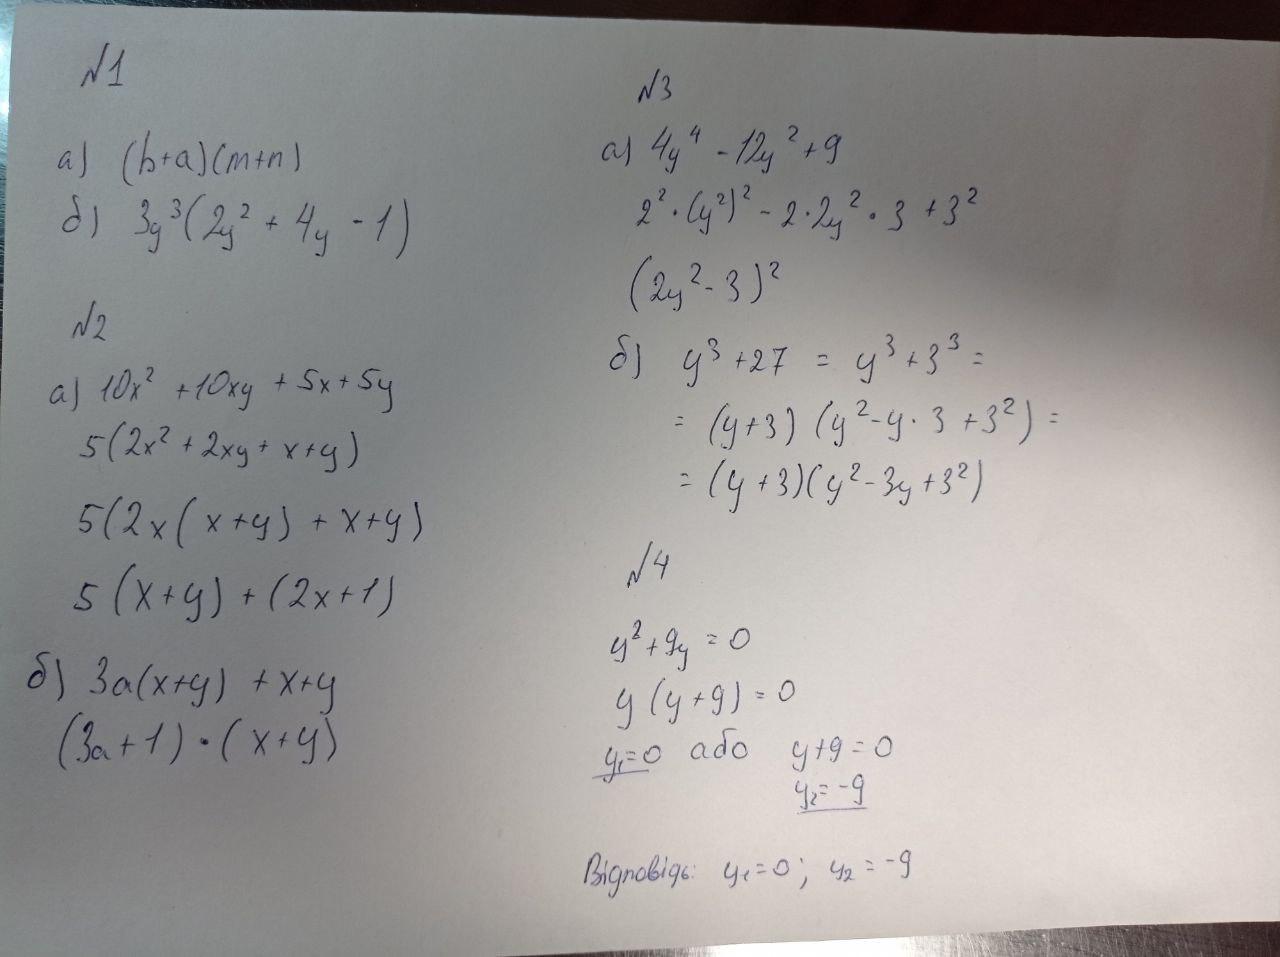 №1
а) (b+a)(m+n)
б) 3y³(2y² + 4y - 1)
№2
а) 10x² + 10xy + 5x + 5y
5(2x² + 2xy + x+y)
5(2x(x+y) + x+y)
5(x+y) + (2x+1)
б) 3a(x+y) + x+y
(3a+1)·(x+y)
№3
а) 4y⁴ - 12y² + 9
2²·(y²)² - 2·2y²·3 + 3²
(2y² - 3)²
б) y³ + 27 = y³ + 3³ =
= (y+3)(y² - y·3 + 3²) =
= (y+3)(y² - 3y + 3²)
№4
y² + 9y = 0
y(y+9) = 0
y₁=0 або y+9=0
y₂=-9
Відповідь: y₁=0; y₂=-9